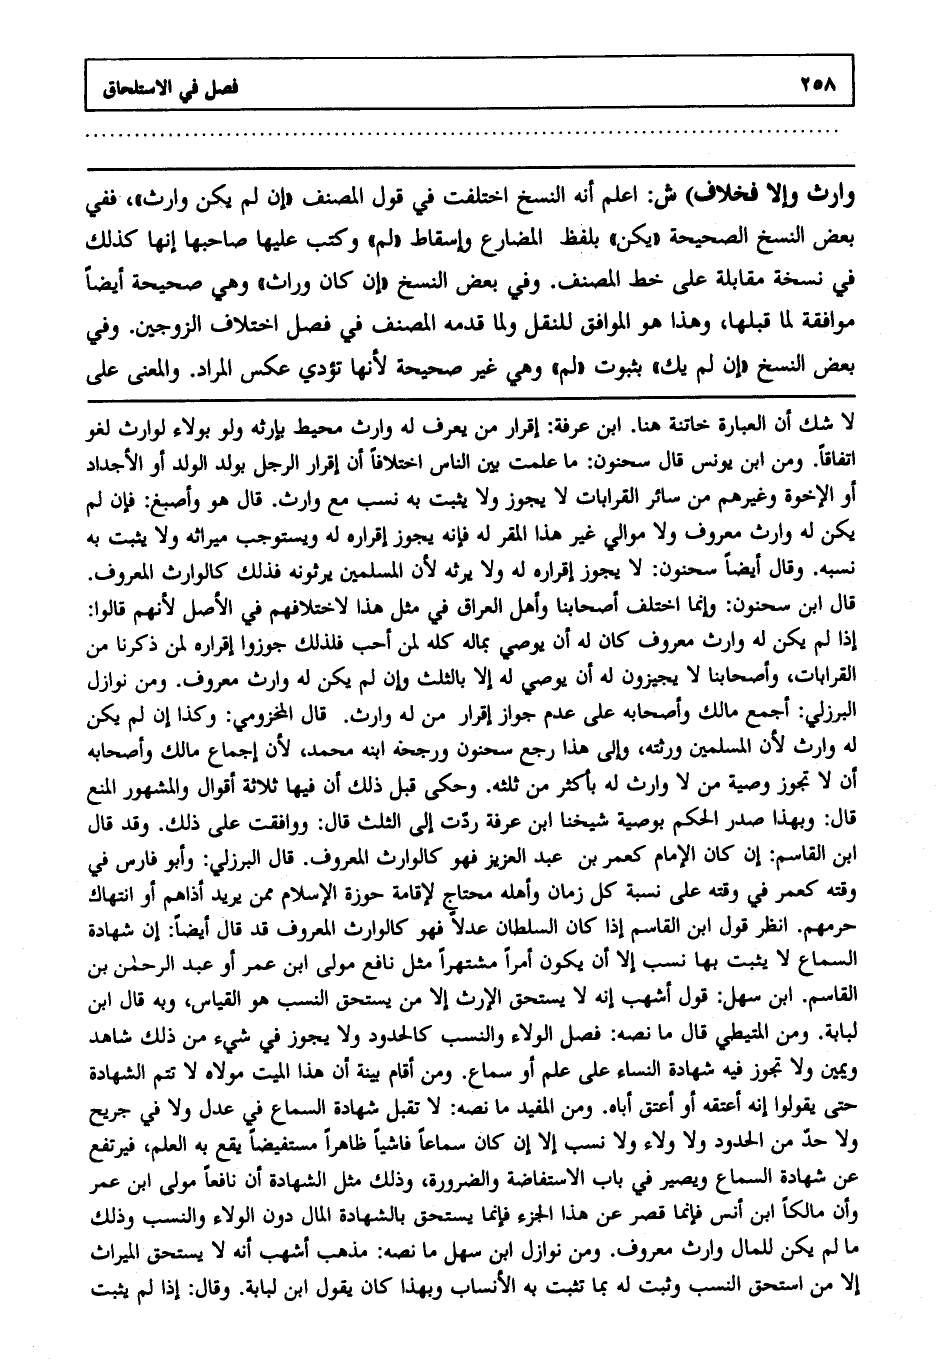 ٢٥٨ فصل في الاستلحاق
وارث وإلا فخلاف) ش: اعلم أنه النسخ اختلفت في قول المصنف «إن لم يكن وارث»، ففي
بعض النسخ الصحيحة «يكن» بلفظ المضارع وإسقاط «لم» وكتب عليها صاحبها إنها كذلك
في نسخة مقابلة على خط المصنف. وفي بعض النسخ «إن كان وراث» وهي صحيحة أيضاً
موافقة لما قبلها، وهذا هو الموافق للنقل ولما قدمه المصنف في فصل اختلاف الزوجين. وفي
بعض النسخ «إن لم يك» بثبوت «لم» وهي غير صحيحة لأنها تؤدي عكس المراد. والمعنى على
لا شك أن العبارة خاتنة هنا. ابن عرفة: إقرار من يعرف له وارث محيط بإرثه ولو بولاء لوارث لغو
اتفاقاً. ومن ابن يونس قال سحنون: ما علمت بين الناس اختلافاً أن إقرار الرجل بولد الولد أو الأجداد
أو الإخوة وغيرهم من سائر القرابات لا يجوز ولا يثبت به نسب مع وارث. قال هو وأصبغ: فإن لم
يكن له وارث معروف ولا موالي غير هذا المقر له فإنه يجوز إقراره له ويستوجب ميراثه ولا يثبت به
نسبه. وقال أيضاً سحنون: لا يجوز إقراره له ولا يرثه لأن المسلمين يرثونه فذلك كالوارث المعروف.
قال ابن سحنون: وإنما اختلف أصحابنا وأهل العراق في مثل هذا لاختلافهم في الأصل لأنهم قالوا:
إذا لم يكن له وارث معروف كان له أن يوصي بماله كله لمن أحب فلذلك جوزوا إقراره لمن ذكرنا من
القرابات، وأصحابنا لا يجيزون له أن يوصي له إلا بالثلث وإن لم يكن له وارث معروف. ومن نوازل
البرزلي: أجمع مالك وأصحابه على عدم جواز إقرار من له وارث. قال المخزومي: وكذا إن لم يكن
له وارث لأن المسلمين ورثته، وإلى هذا رجع سحنون ورجحه ابنه محمد، لأن إجماع مالك وأصحابه
أن لا تجوز وصية من لا وارث له بأكثر من ثلثه. وحكى قبل ذلك أن فيها ثلاثة أقوال والمشهور المنع
قال: وبهذا صدر الحكم بوصية شيخنا ابن عرفة ردّت إلى الثلث قال: ووافقت على ذلك. وقد قال
ابن القاسم: إن كان الإمام كعمر بن عبد العزيز فهو كالوارث المعروف. قال البرزلي: وأبو فارس في
وقته كعمر في وقته على نسبة كل زمان وأهله محتاج لإقامة حوزة الإسلام ممن يريد أذاهم أو انتهاك
حرمهم. انظر قول ابن القاسم إذا كان السلطان عدلاً فهو كالوارث المعروف قد قال أيضاً: إن شهادة
السماع لا يثبت بها نسب إلا أن يكون أمراً مشتهراً مثل نافع مولى ابن عمر أو عبد الرحمٰن بن
القاسم. ابن سهل: قول أشهب إنه لا يستحق الإرث إلا من يستحق النسب هو القياس، وبه قال ابن
لبابة. ومن المتيطي قال ما نصه: فصل الولاء والنسب كالحدود ولا يجوز في شيء من ذلك شاهد
ويمين ولا تجوز فيه شهادة النساء على علم أو سماع. ومن أقام بينة أن هذا الميت مولاه لا تتم الشهادة
حتى يقولوا إنه أعتقه أو أعتق أباه. ومن المفيد ما نصه: لا تقبل شهادة السماع في عدل ولا في جريح
ولا حدّ من الحدود ولا ولاء ولا نسب إلا إن كان سماعاً فاشياً ظاهراً مستفيضاً يقع به العلم، فيرتفع
عن شهادة السماع ويصير في باب الاستفاضة والضرورة، وذلك مثل الشهادة أن نافعاً مولى ابن عمر
وأن مالكاً ابن أنس فإنما قصر عن هذا الجزء فإنما يستحق بالشهادة المال دون الولاء والنسب وذلك
ما لم يكن للمال وارث معروف. ومن نوازل ابن سهل ما نصه: مذهب أشهب أنه لا يستحق الميراث
إلا من استحق النسب وثبت له بما تثبت به الأنساب وبهذا كان يقول ابن لبابة. وقال: إذا لم يثبت